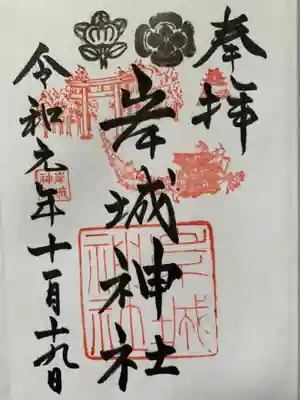 奉拝
岸城神社
岸城
神社
令和元年十一月十九日